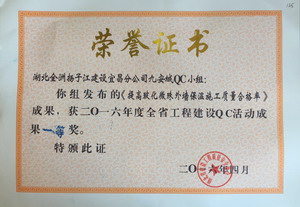 荣誉证书
湖北金洲扬子江建设宜昌分公司九安城QC小组:
你组发布的《提高玻化微珠外墙保温施工质量合格率》
成果，获二〇一六年度全省工程建设QC活动成
果一等奖。
特颁此证
二〇一六年四月